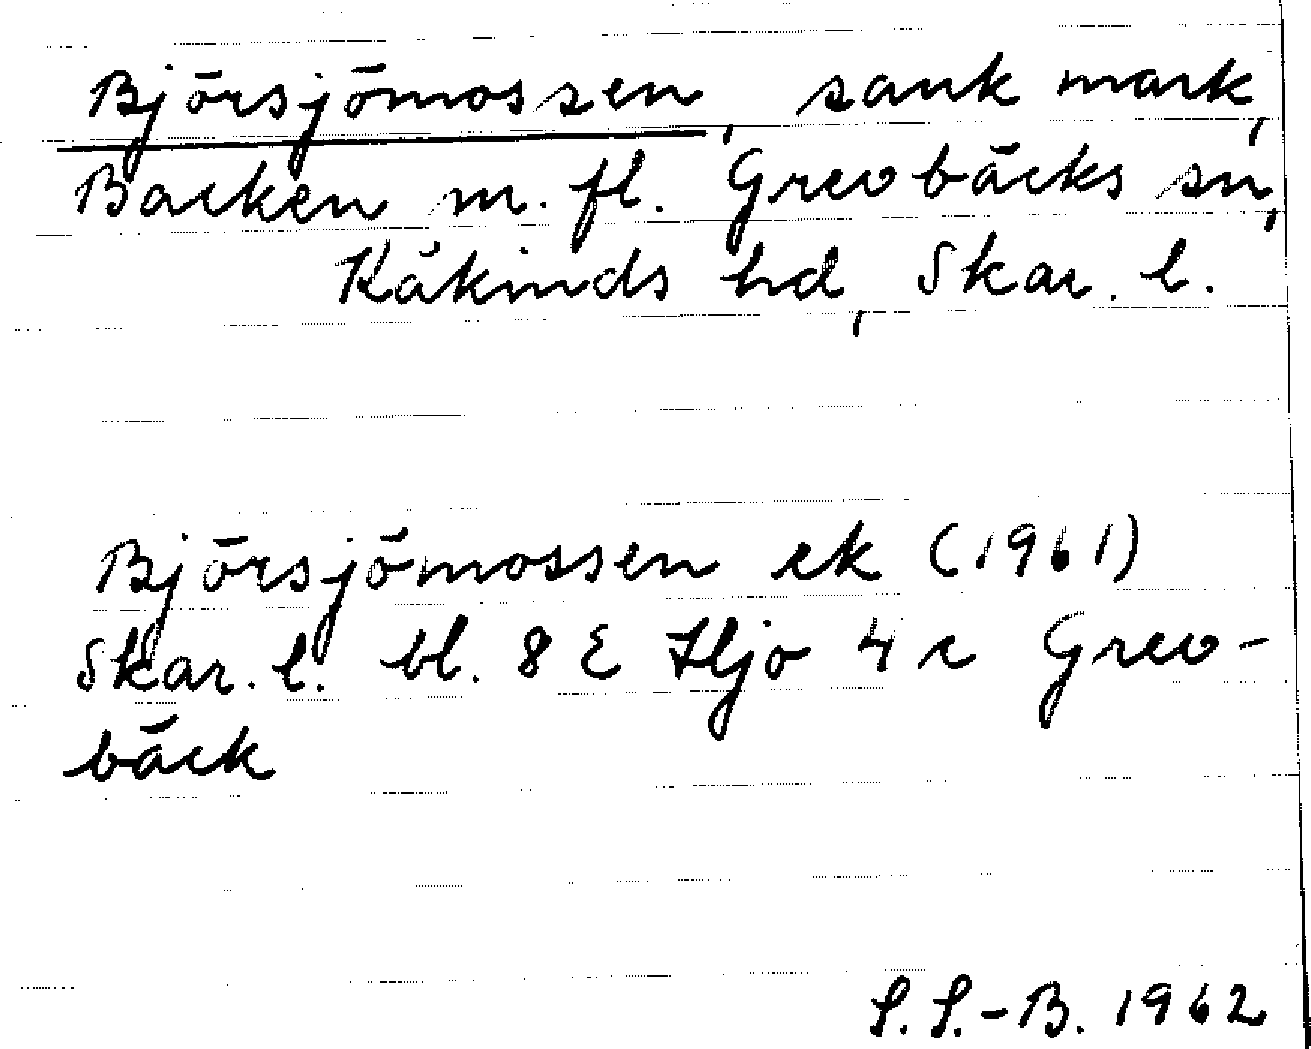 Björsjömossen, sank mark,
Backen m. fl. Grevbäcks sn,
Kåkinds hd, Skar. l.
Björsjömossen ek (1961)
Skar. l. bl. 8 E Hjo 4 c Grev-
bäck
S. S.-B. 1962